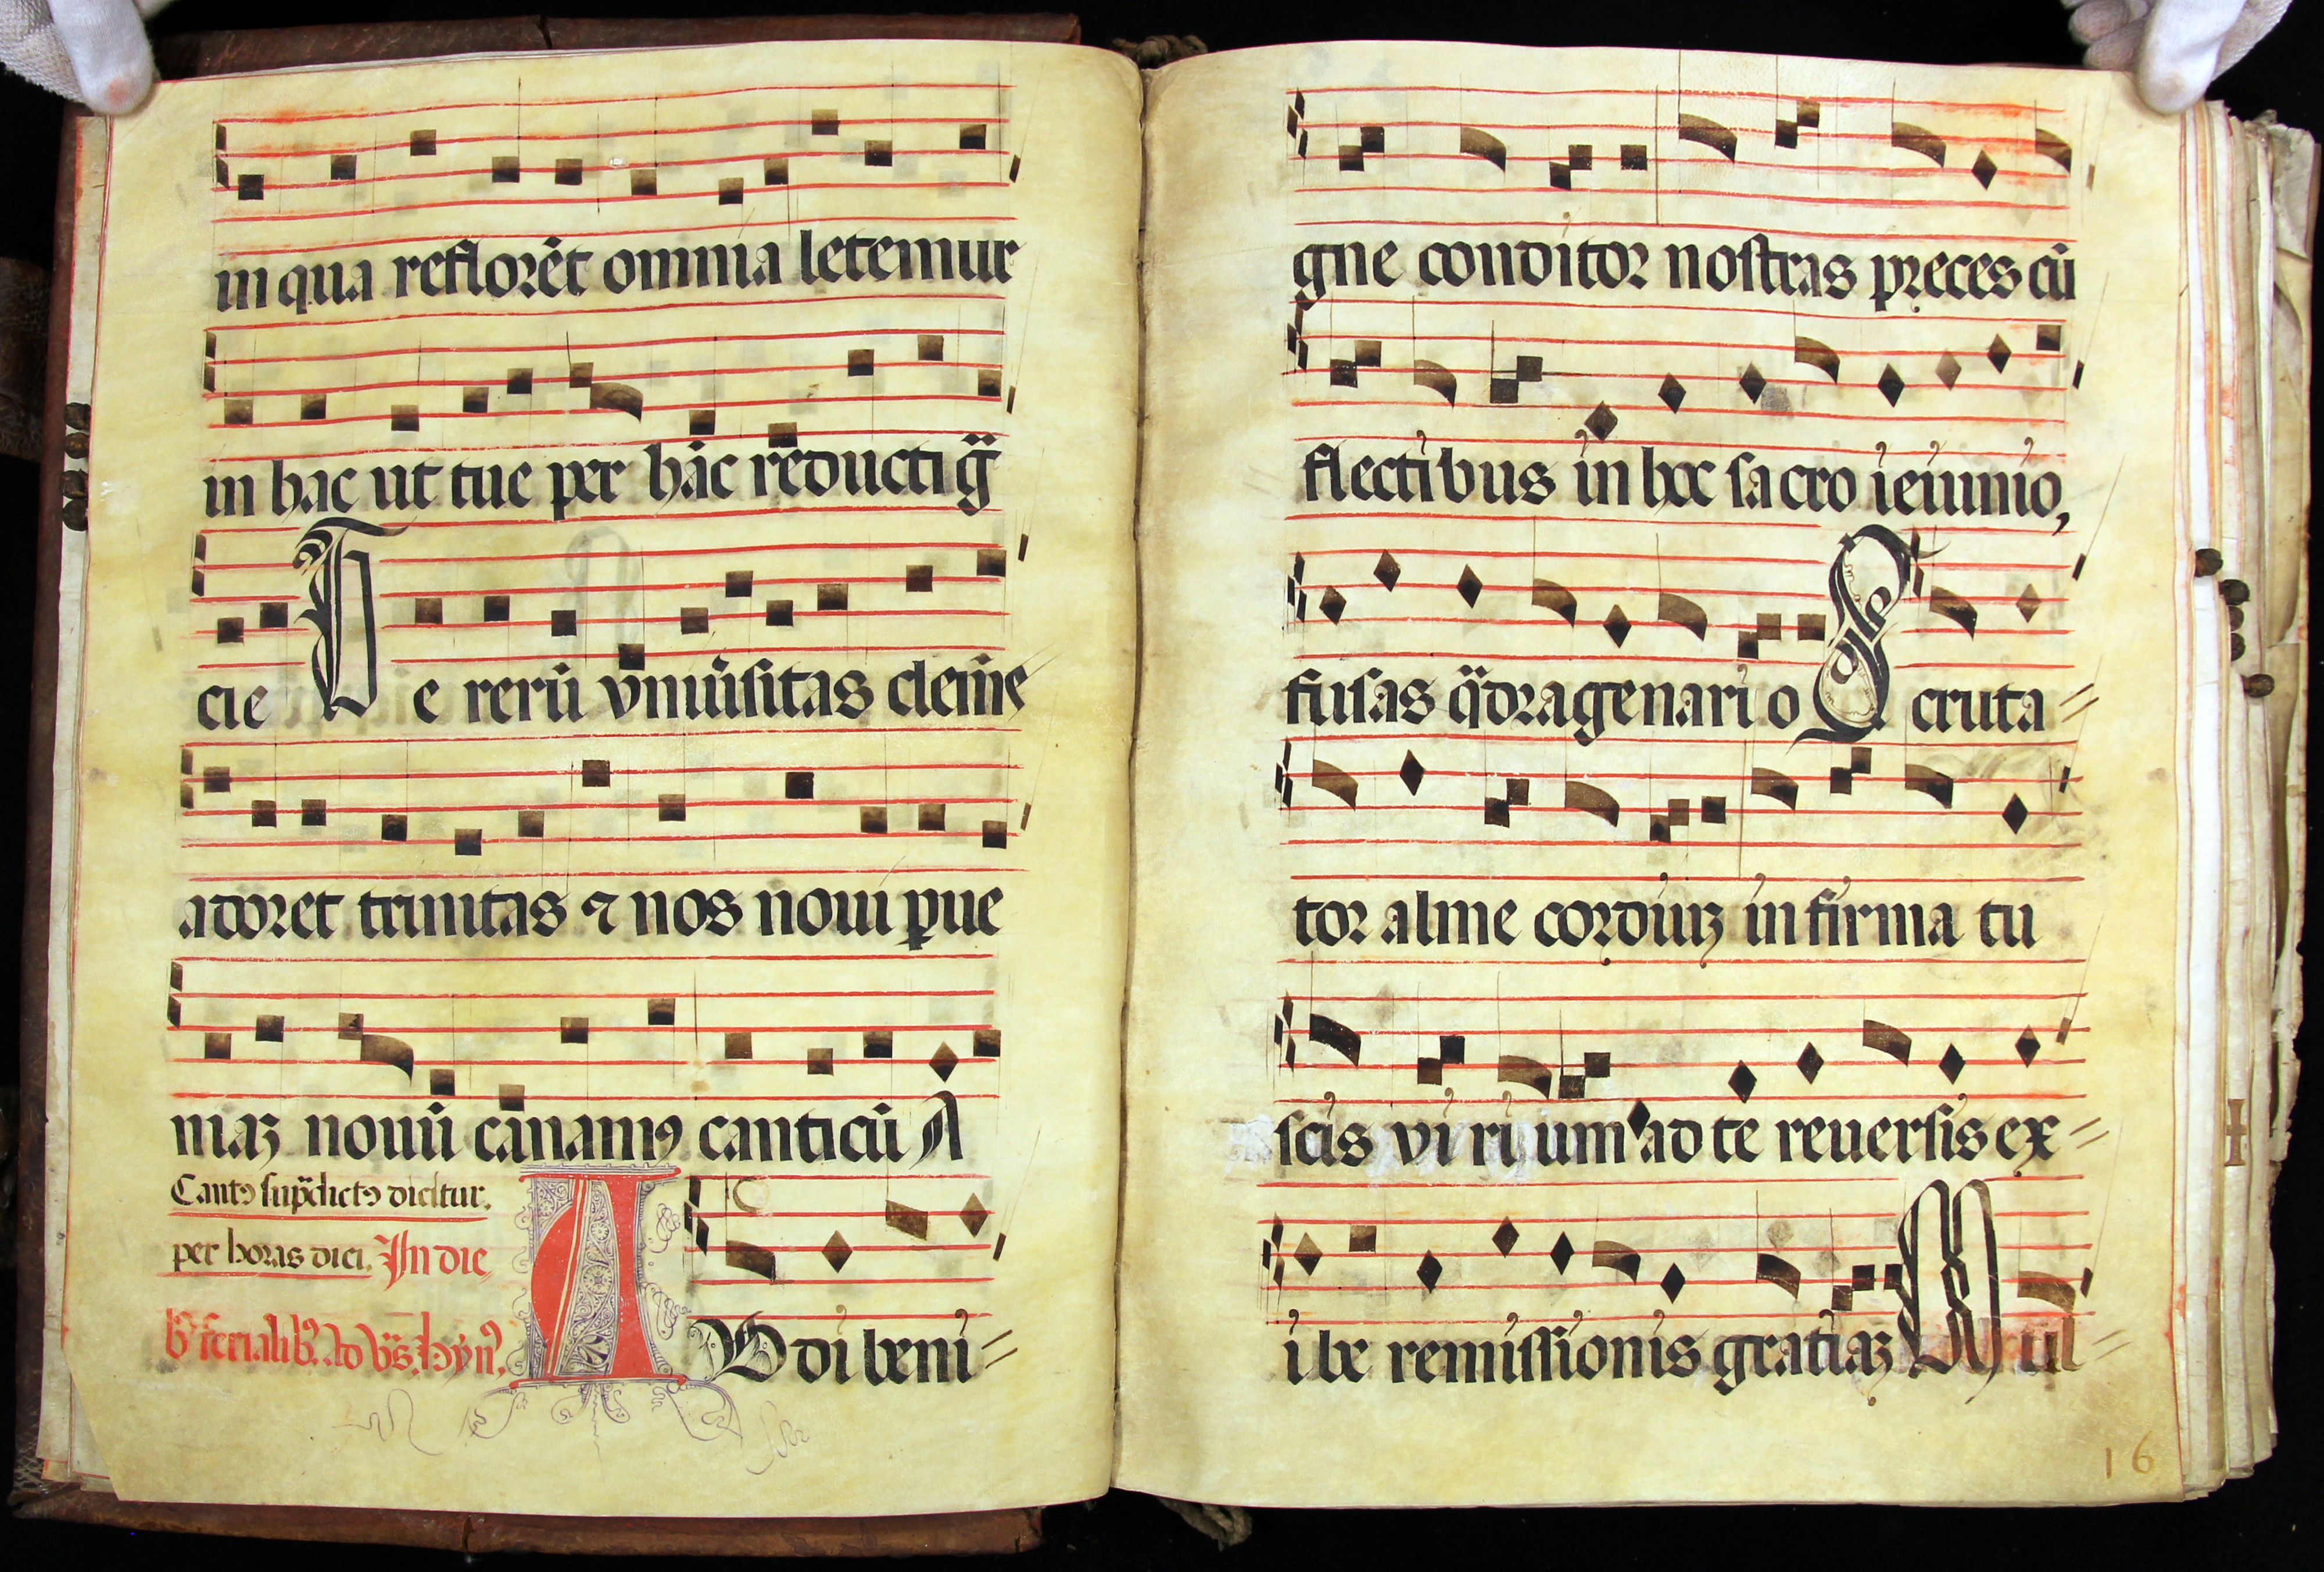 in qua reflorẽt omnia letemur
in hac ut tue per hãc reducti g̃
cie Te rerũ vniũsitas clemẽ
adoret trinitas ⁊ nos noui pue
niaꝫ nouũ canamꝰ canticũ A
Cantꝰ sup̃dictꝰ dicitur.
per horas diei. In die
bꝰ ferialibꝰ. Ad vs̃. hynꝰ.
AVdi beni=
gne conditor nostras preces cũ
flectibus in hoc sacro ieiunio,
fusas q̃dragenario Scruta=
tor alme cordiuꝫ infirma tu
scis virium ad te reuersis ex=
ibe remissionis gratiaꝫ Mul=
16